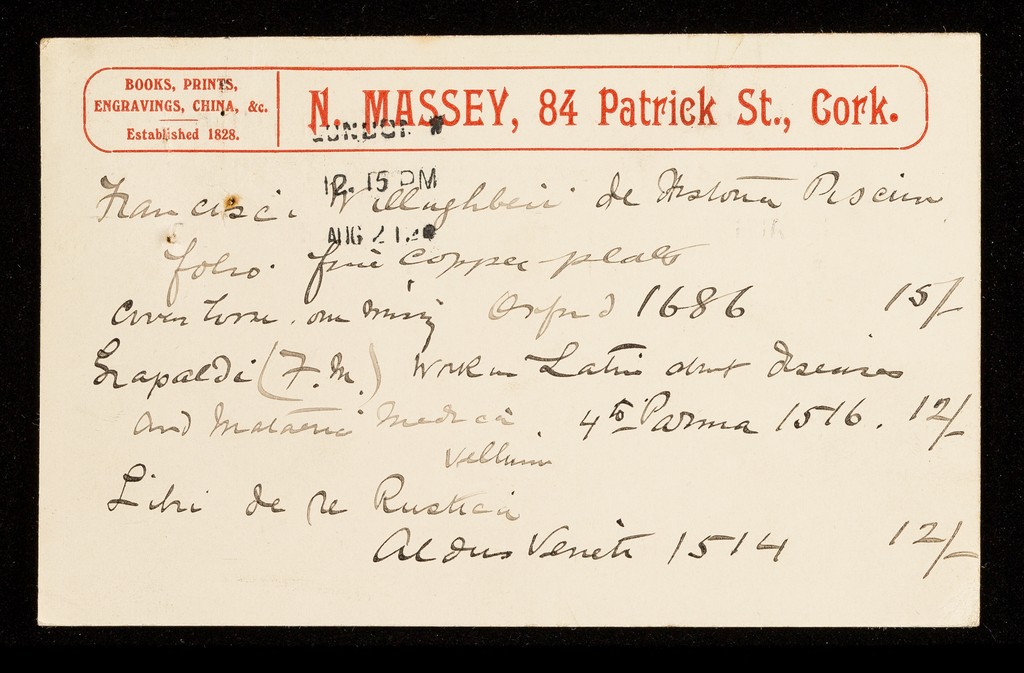 BOOKS, PRINTS,
ENGRAVINGS, CHINA, &c.
Established 1828.
N. MASSEY, 84 Patrick St., Cork.
LONDON
12. 15 PM
AUG 21.
Francisci Willughbeii de Historia Piscium
folio. fine copper plats
cover torn. one missing Oxford 1686 15/-
Grapaldi (F.M.) Work in Latin about diseases
and Materia Medica. 4to Parma 1516. 12/-
Vellum
Libri de re Rustica
Aldus Veneti 1514 12/-